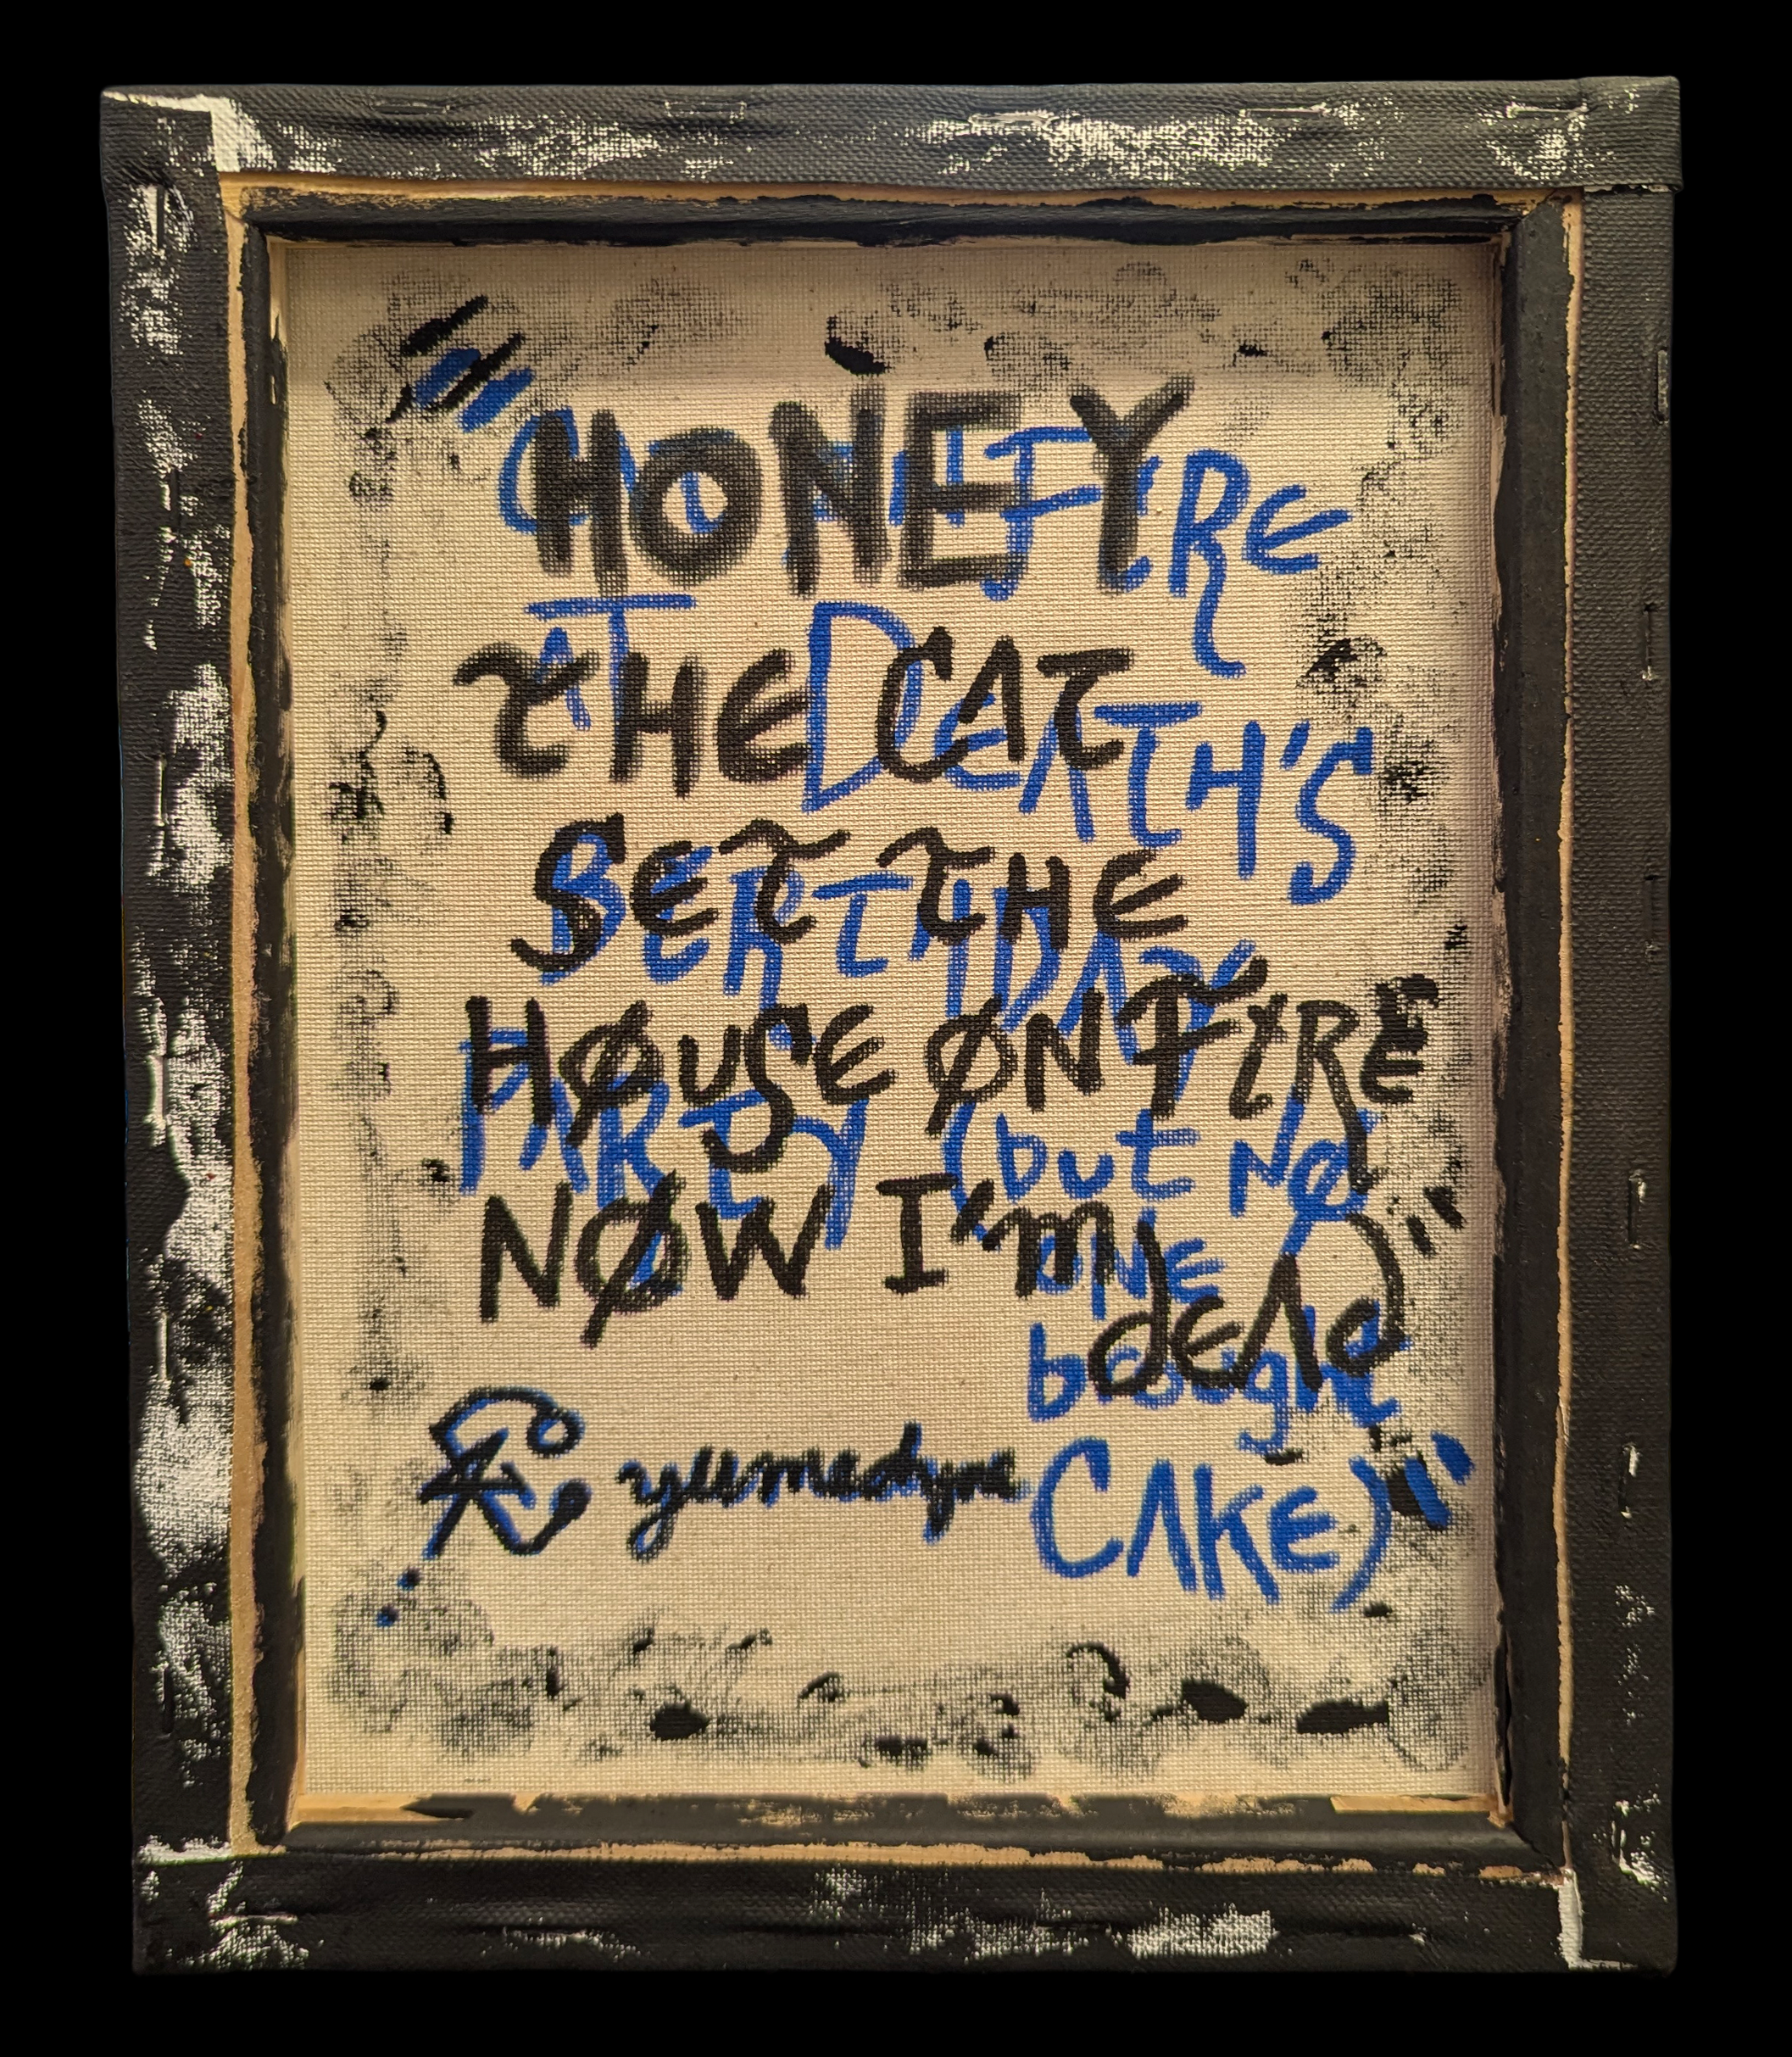 "HONEY
THE CAT
SET THE
HØUSE ØN FIRE
NØW I'm
dEAD"
FIRE
AT DEATH'S
BIRTHDAY
PARTY (but NØ
ONE
bought
CAKE)"
yumedyne